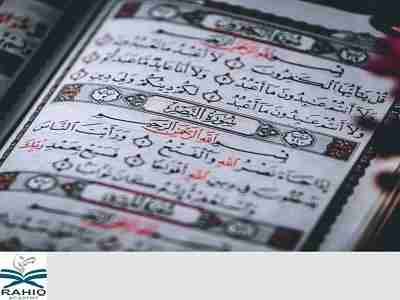 سُورَةُ الكَافِرُونَ
بِسْمِ اللَّهِ الرَّحْمَٰنِ الرَّحِيمِ
قُلْ يَٰٓأَيُّهَا الْكَٰفِرُونَ لَآ أَعْبُدُ مَا تَعْبُدُونَ
وَلَآ أَنتُمْ عَٰبِدُونَ مَآ أَعْبُدُ وَلَآ أَنَا۠ عَابِدٌ مَّا عَبَدتُّمْ
وَلَآ أَنتُمْ عَٰبِدُونَ مَآ أَعْبُدُ لَكُمْ دِينُكُمْ وَلِيَ دِينِ
سُورَةُ النَّصْرِ
بِسْمِ اللَّهِ الرَّحْمَٰنِ الرَّحِيمِ
إِذَا جَآءَ نَصْرُ اللَّهِ وَالْفَتْحُ وَرَأَيْتَ النَّاسَ
يَدْخُلُونَ فِي دِينِ اللَّهِ أَفْوَاجًا فَسَبِّحْ بِحَمْدِ رَبِّكَ
وَاسْتَغْفِرْهُ إِنَّهُ كَانَ تَوَّابًا
RAHIQ
ACADEMY